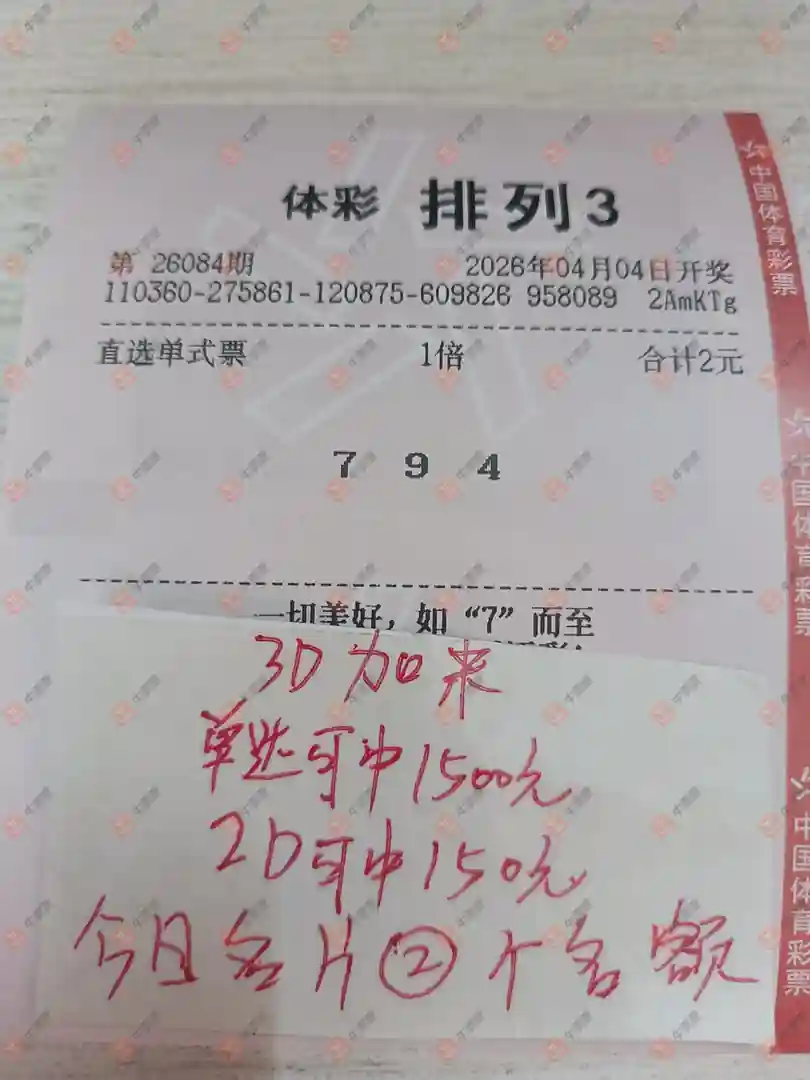 体彩 排列3
第 26084期 2026年04月04日开奖
110360-275861-120875-609826 958089 2AmKTg
直选单式票 1倍 合计2元
7 9 4
一切美好，如“7”而至
3D加来
单选可中1500元
2D可中150元
今日名片②个名额
中国体育彩票
中国体育彩票
中国体育彩票